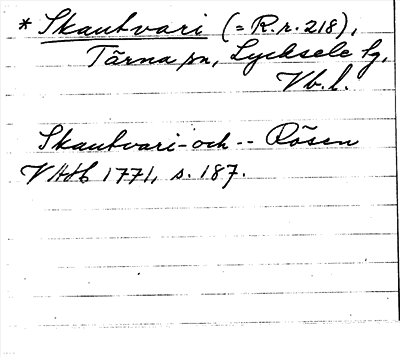 * Skautvari (= R.r. 218),
Tärna sn, Lycksele lg,
Vb. l.
Skautvari - och -- Rösen
VAH 1771, s. 187.